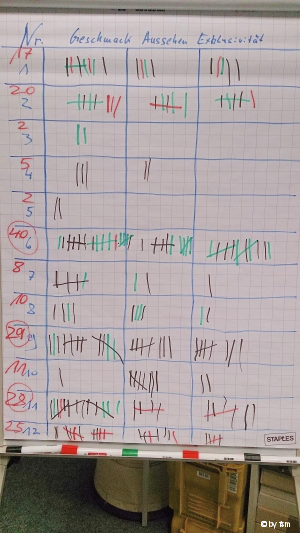 Nr. Geschmack Aussehen Exklusivität
17
1
20
2
2
3
5
4
2
5
40
6
8
7
10
8
29
9
11
10
28
11
25
12
STAPLES
© by tsm